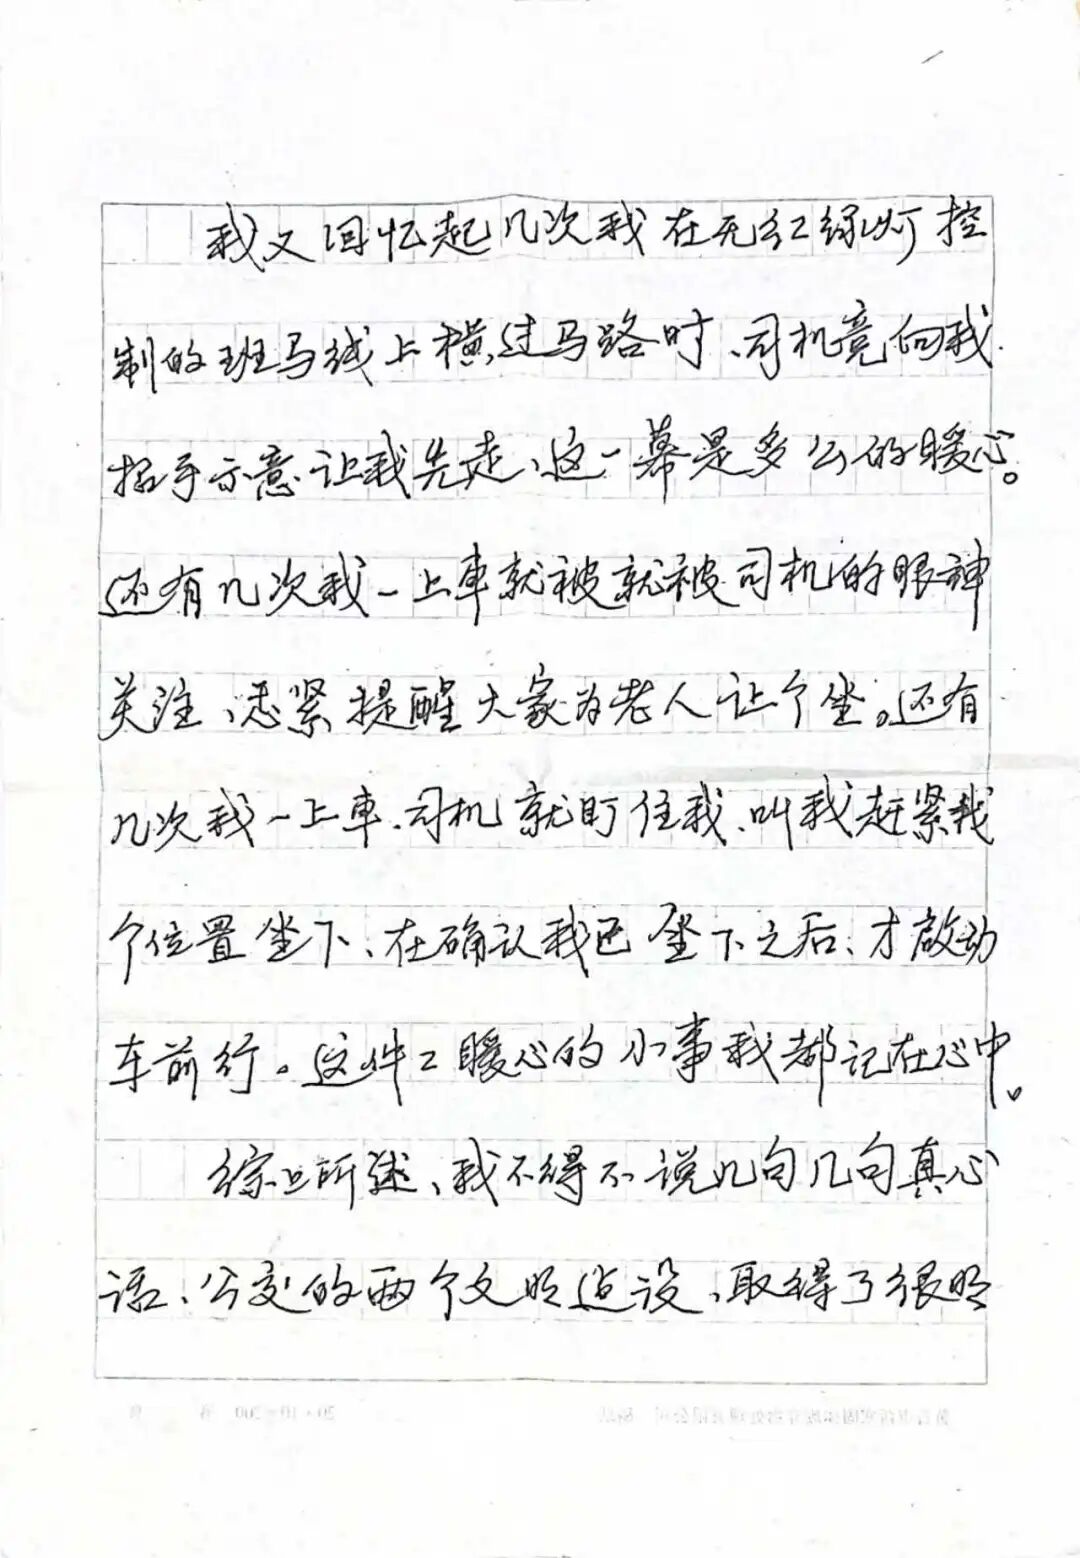 我又回忆起几次我在无红绿灯控
制的班马线上横过马路时、司机竟向我
招手示意让我先走、这一幕是多么的暖心。
还有几次我一上車就被就被司机的眼神
关注、赶紧提醒大家为老人让个坐。还有
几次我一上車、司机就盯住我、叫我赶紧找
个位置坐下、在确认我已坐下之后、才啟动
车前行。这件々暖心的小事我都记在心中。
综上所述、我不得不说几句几句真心
话、公交的两个文明建设、取得了很明
20×10=200